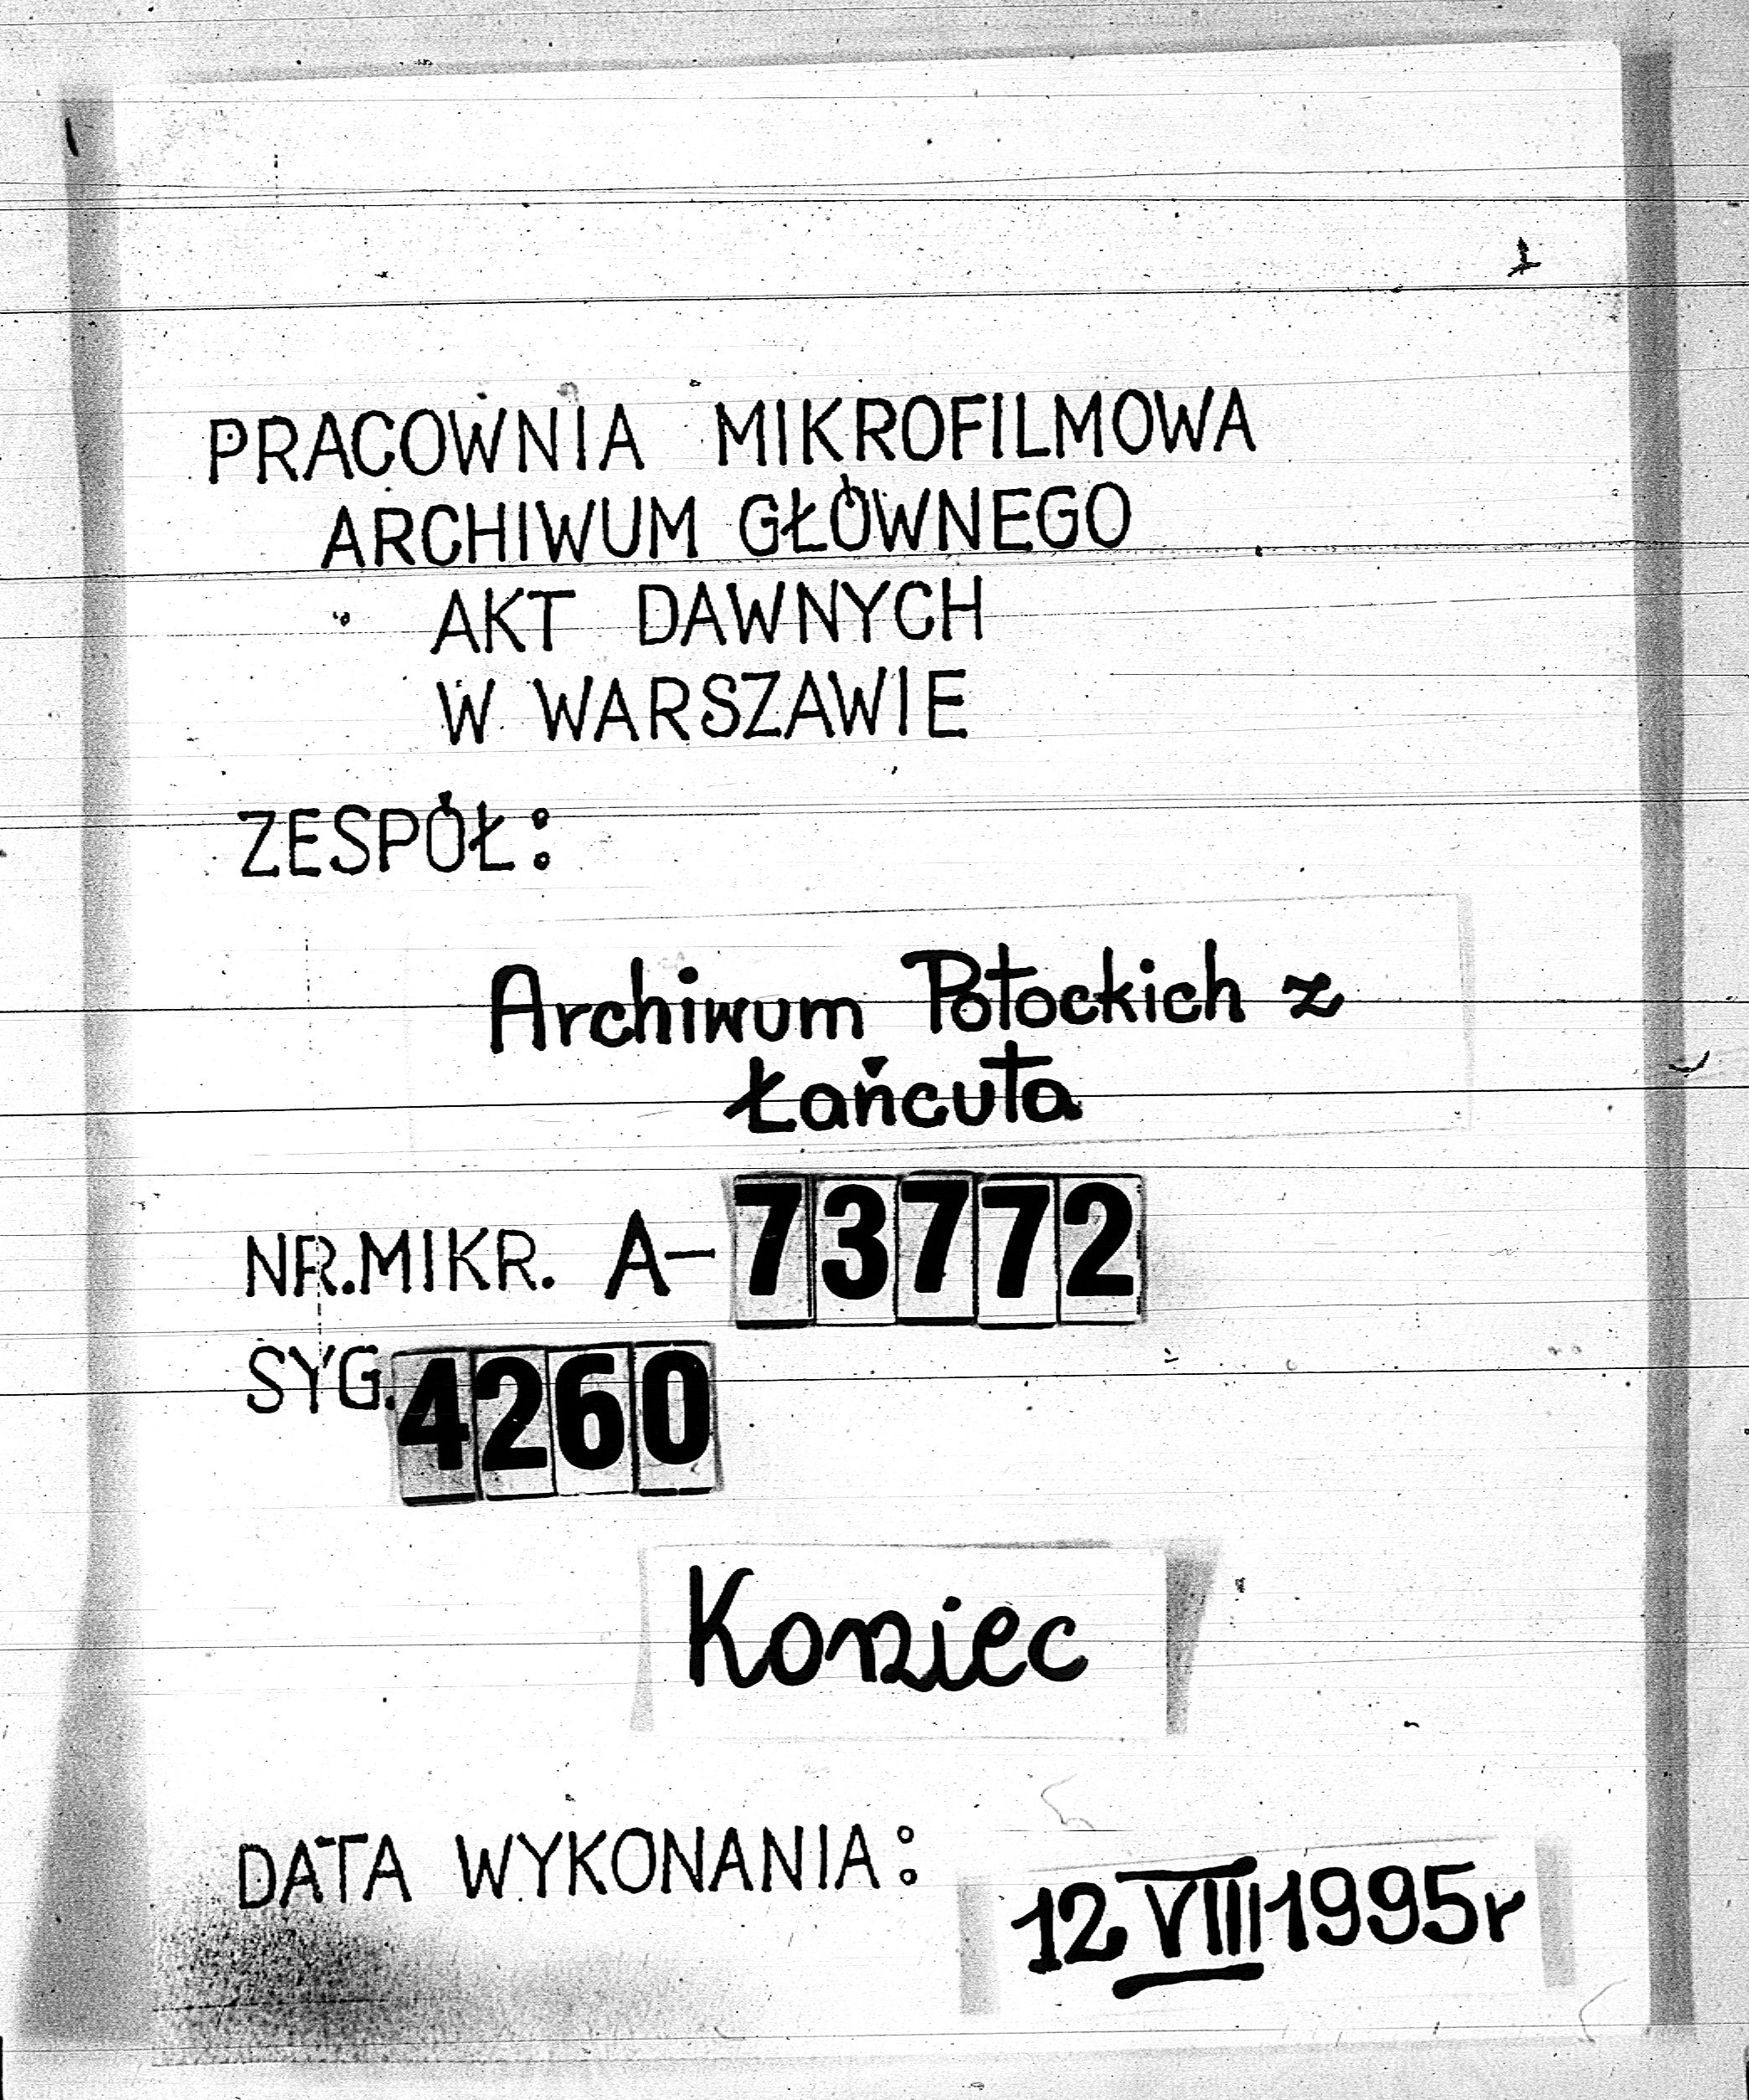 PRACOWNIA MIKROFILMOWA
ARCHIWUM GŁÓWNEGO
AKT DAWNYCH
W WARSZAWIE
ZESPÓŁ:
Archiwum Potockich z
Łańcuta
NR.MIKR. A-73772
SYG.4260
Koniec
DATA WYKONANIA: 12 VIII 1995r